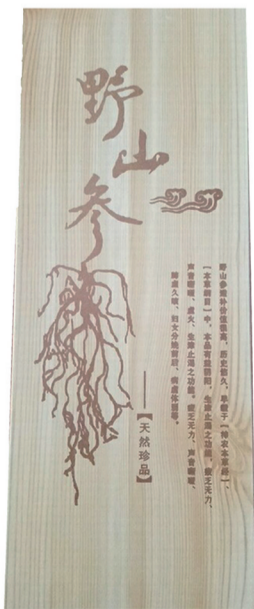 野山参
——【天然珍品】
野山参滋补价值极高，历史悠久，早载于【神农本草经】、
【本草纲目】中，本品有益
生津止渴之功能。疲乏无力、
声音嘶哑、虚火、生津止渴之功能。疲乏无力、声音嘶哑、
肺虚久咳、妇女分娩前后、病虚体弱等。